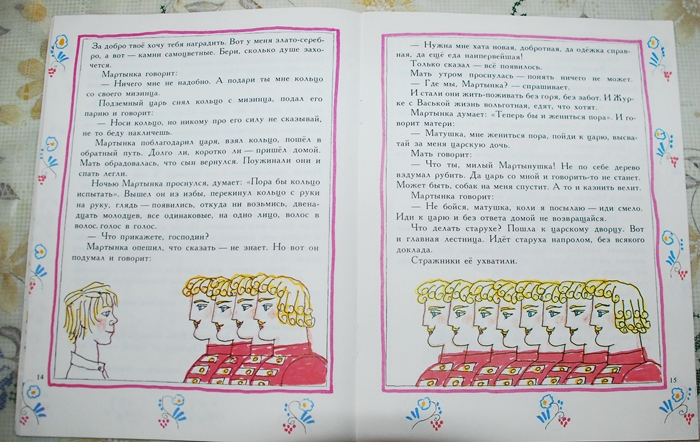 За добро твоё хочу тебя наградить. Вот у меня злато-сереб-
ро, а вот — камни самоцветные. Бери, сколько душе захо-
чется.
Мартынка говорит:
— Ничего мне не надобно. А подари ты мне кольцо
со своего мизинца.
Подземный царь снял кольцо с мизинца, подал его
парню и говорит:
— Носи кольцо, но никому про его силу не сказывай,
не то беду накличешь.
Мартынка поблагодарил царя, взял кольцо, пошёл в
обратный путь. Долго ли, коротко ли — пришёл домой.
Мать обрадовалась, что сын вернулся. Поужинали они и
спать легли.
Ночью Мартынка проснулся, думает: «Пора бы кольцо
испытать». Вышел он из избы, перекинул кольцо с руки
на руку, глядь — появились, откуда ни возьмись, двена-
дцать молодцев, все одинаковые, на одно лицо, волос в
волос, голос в голос.
— Что прикажете, господин?
Мартынка опешил, что сказать — не знает. Но вот он
подумал и говорит:
14
— Нужна мне хата новая, добротная, да одёжка справ-
ная, да ещё еда наипервейшая!
Только сказал — всё появилось.
Мать утром проснулась — понять ничего не может.
— Где мы, Мартынка? — спрашивает.
И стали они жить-поживать без горя, без забот. И Жур-
ке с Васькой жизнь вольготная, едят, что хотят.
Мартынка думает: «Теперь бы и жениться пора». И го-
ворит матери:
— Матушка, мне жениться пора, пойди к царю, высва-
тай за меня царскую дочь.
Мать говорит:
— Что ты, милый Мартынушка! Не по себе дерево
вздумал рубить. Да царь со мной и говорить-то не станет.
Может быть, собак на меня спустит. А то и казнить велит.
Мартынка говорит:
— Не бойся, матушка, коли я посылаю — иди смело.
Иди к царю и без ответа домой не возвращайся.
Что делать старухе? Пошла к царскому дворцу. Вот
и главная лестница. Идёт старуха напролом, без всякого
доклада.
Стражники её ухватили.
15